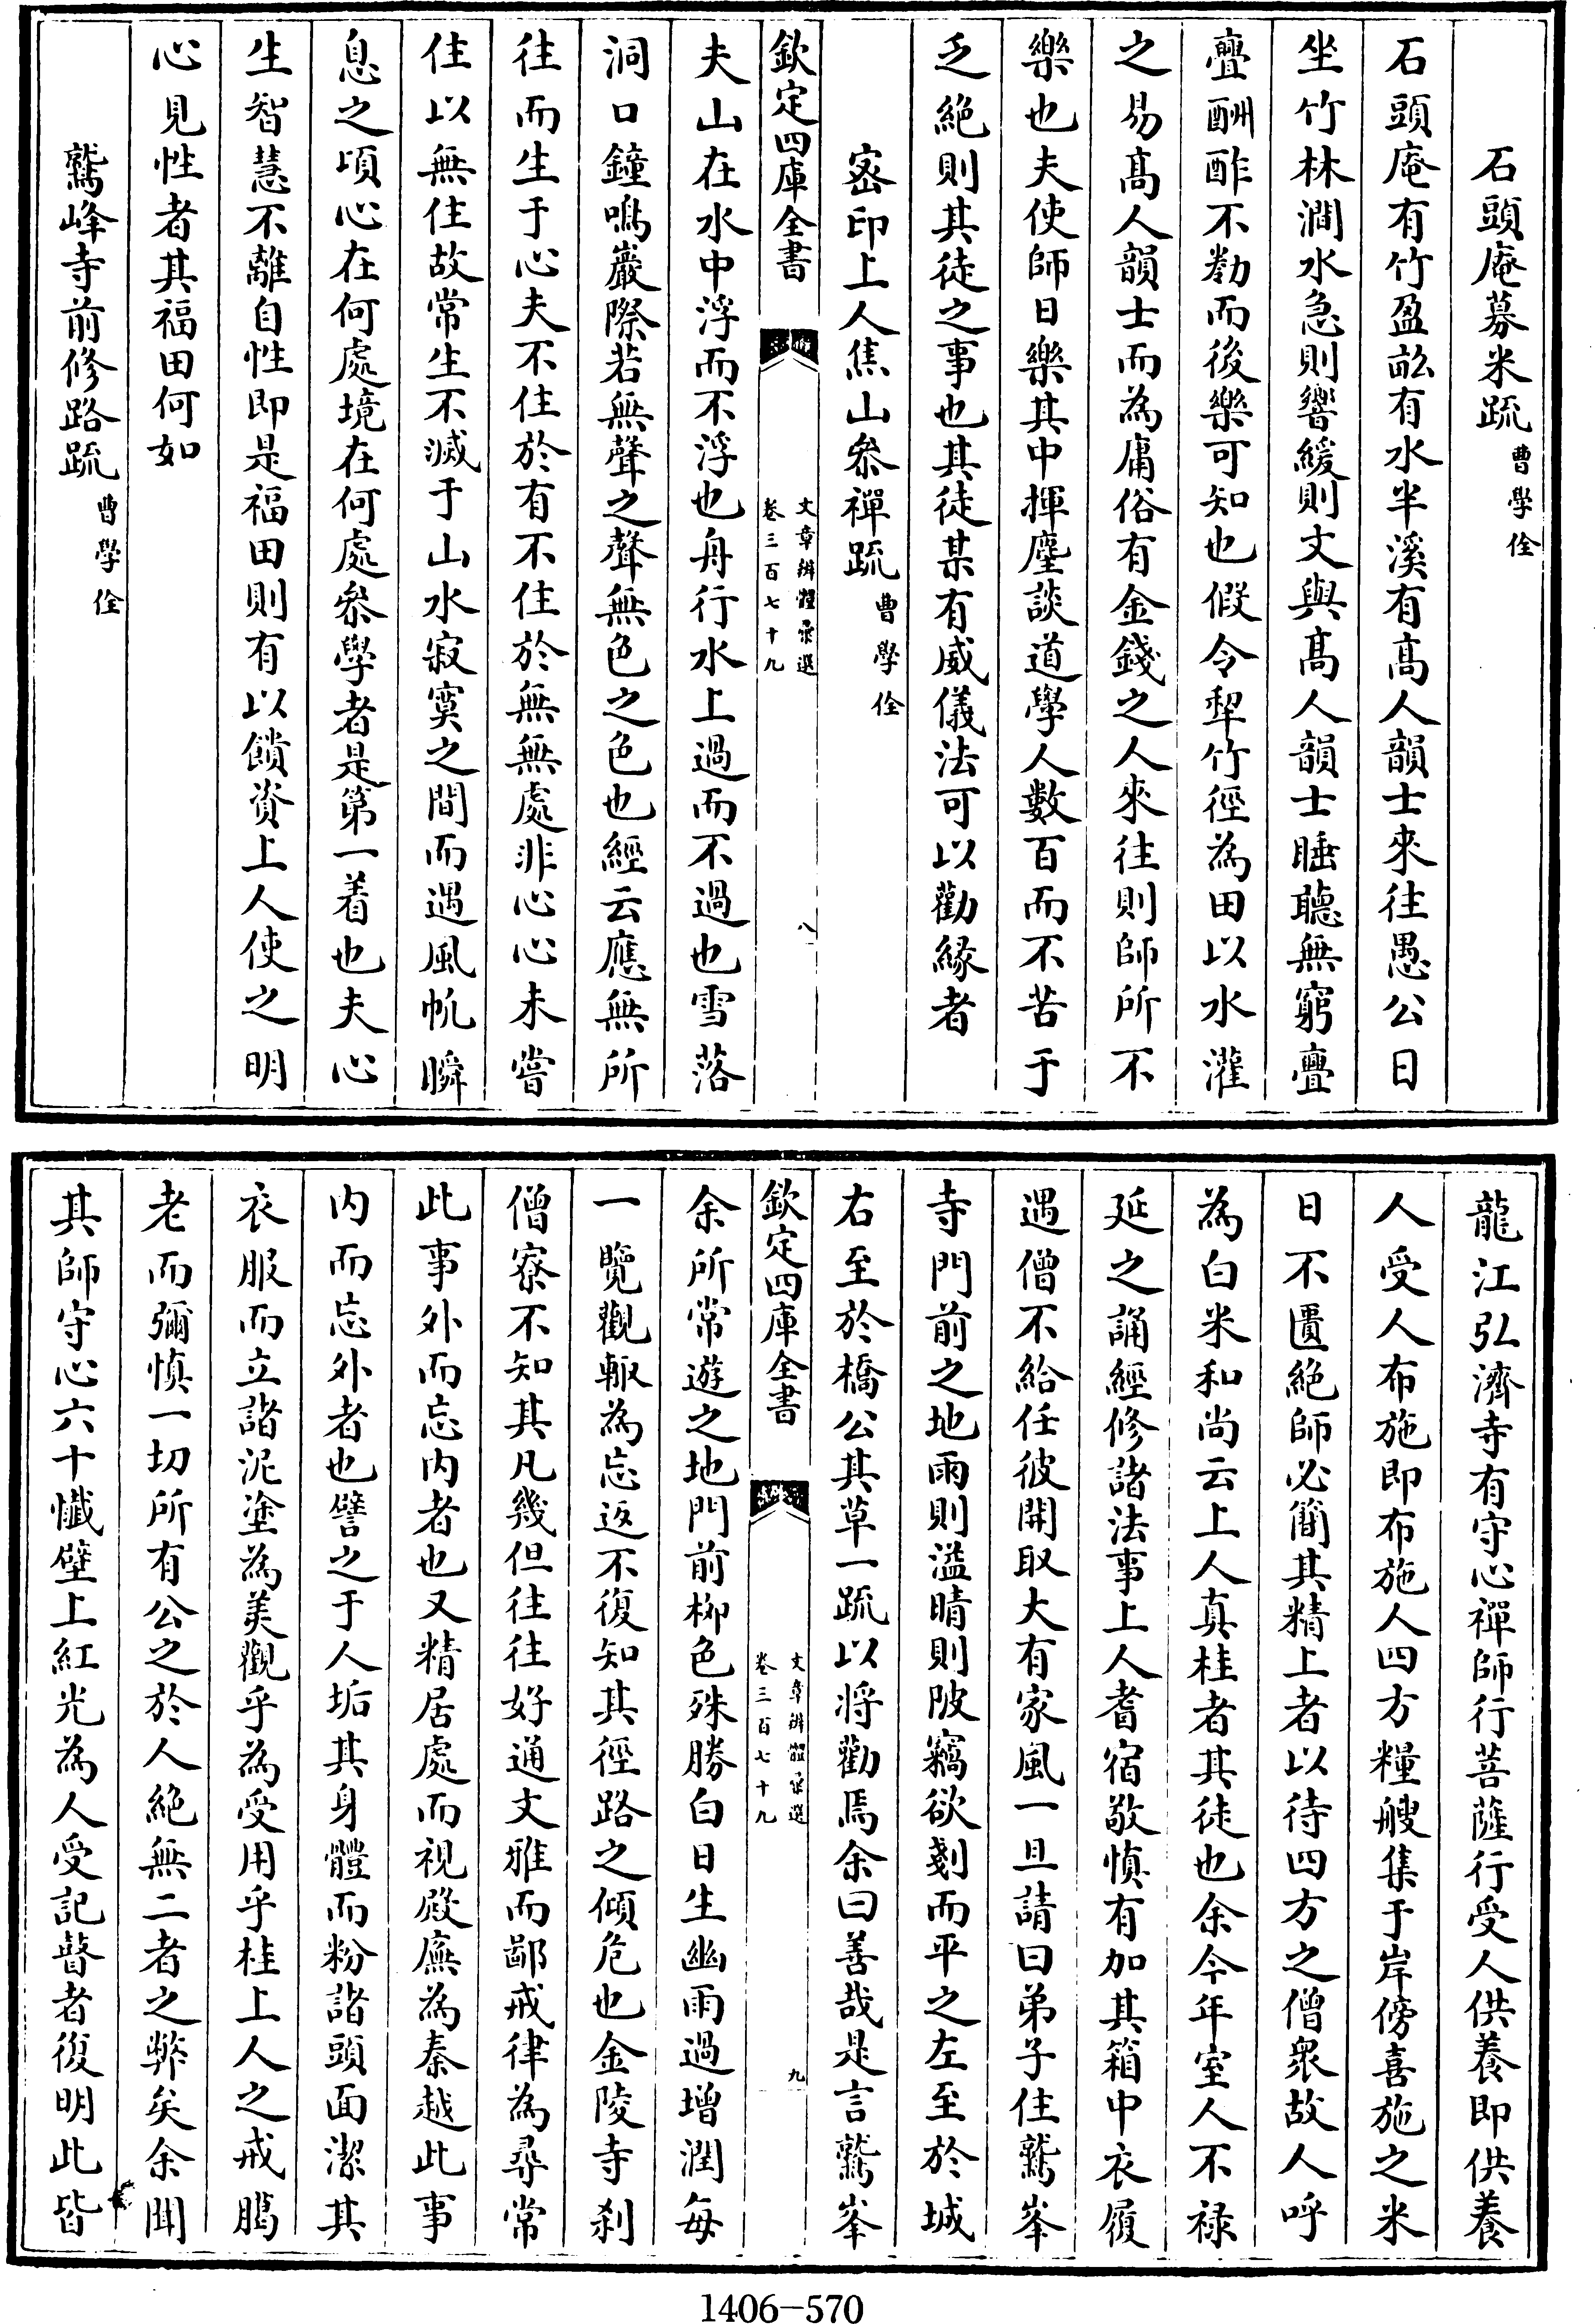 石頭庵募米疏 曹學佺
石頭庵有竹盈畝有水半溪有高人韻士來往愚公日
坐竹林澗水急則響緩則文與高人韻士睡聽無窮亹
亹酬酢不勌而後樂可知也假令犁竹徑為田以水灌
之易高人韻士而為庸俗有金錢之人來往則師所不
樂也夫使師日樂其中揮麈談道學人數百而不苦于
乏絶則其徒之事也其徒某有威儀法可以勸緣者
密印上人焦山叅禪疏 曹學佺
欽定四庫全書
文章辨體彙選
卷三百七十九
八
夫山在水中浮而不浮也舟行水上過而不過也雪落
洞口鐘鳴巖際若無聲之聲無色之色也經云應無所
往而生于心夫不住於有不住於無無處非心心未嘗
住以無住故常生不滅于山水寂寞之間而遇風帆瞬
息之頃心在何處境在何處叅學者是第一着也夫心
生智慧不離自性即是福田則有以饋資上人使之明
心見性者其福田何如
鷲峰寺前修路疏 曹學佺
龍江弘濟寺有守心禪師行菩薩行受人供養即供養
人受人布施即布施人四方糧艘集于岸傍喜施之米
日不匱絶師必簡其精上者以待四方之僧衆故人呼
為白米和尚云上人真桂者其徒也余今年室人不禄
延之誦經修諸法事上人耆宿敬慎有加其箱中衣履
遇僧不給任彼開取大有家風一旦請曰弟子住鷲峯
寺門前之地雨則溢晴則陂竊欲剗而平之左至於城
右至於橋公其草一疏以將勸焉余曰善哉是言鷲峯
欽定四庫全書
文章辨體彙選
卷三百七十九
九
余所常遊之地門前栁色殊勝白日生幽雨過增潤每
一覽觀輙為忘返不復知其徑路之傾危也金陵寺刹
僧寮不知其凡幾但往往好通文雅而鄙戒律為尋常
此事外而忘内者也又精居處而視殿廡為秦越此事
内而忘外者也譬之于人垢其身體而粉諸頭面潔其
衣服而立諸泥塗為美觀乎為受用乎桂上人之戒臈
老而彌慎一切所有公之於人絶無二者之弊矣余聞
其師守心六十懺壁上紅光為人受記瞽者復明此皆
1406-570